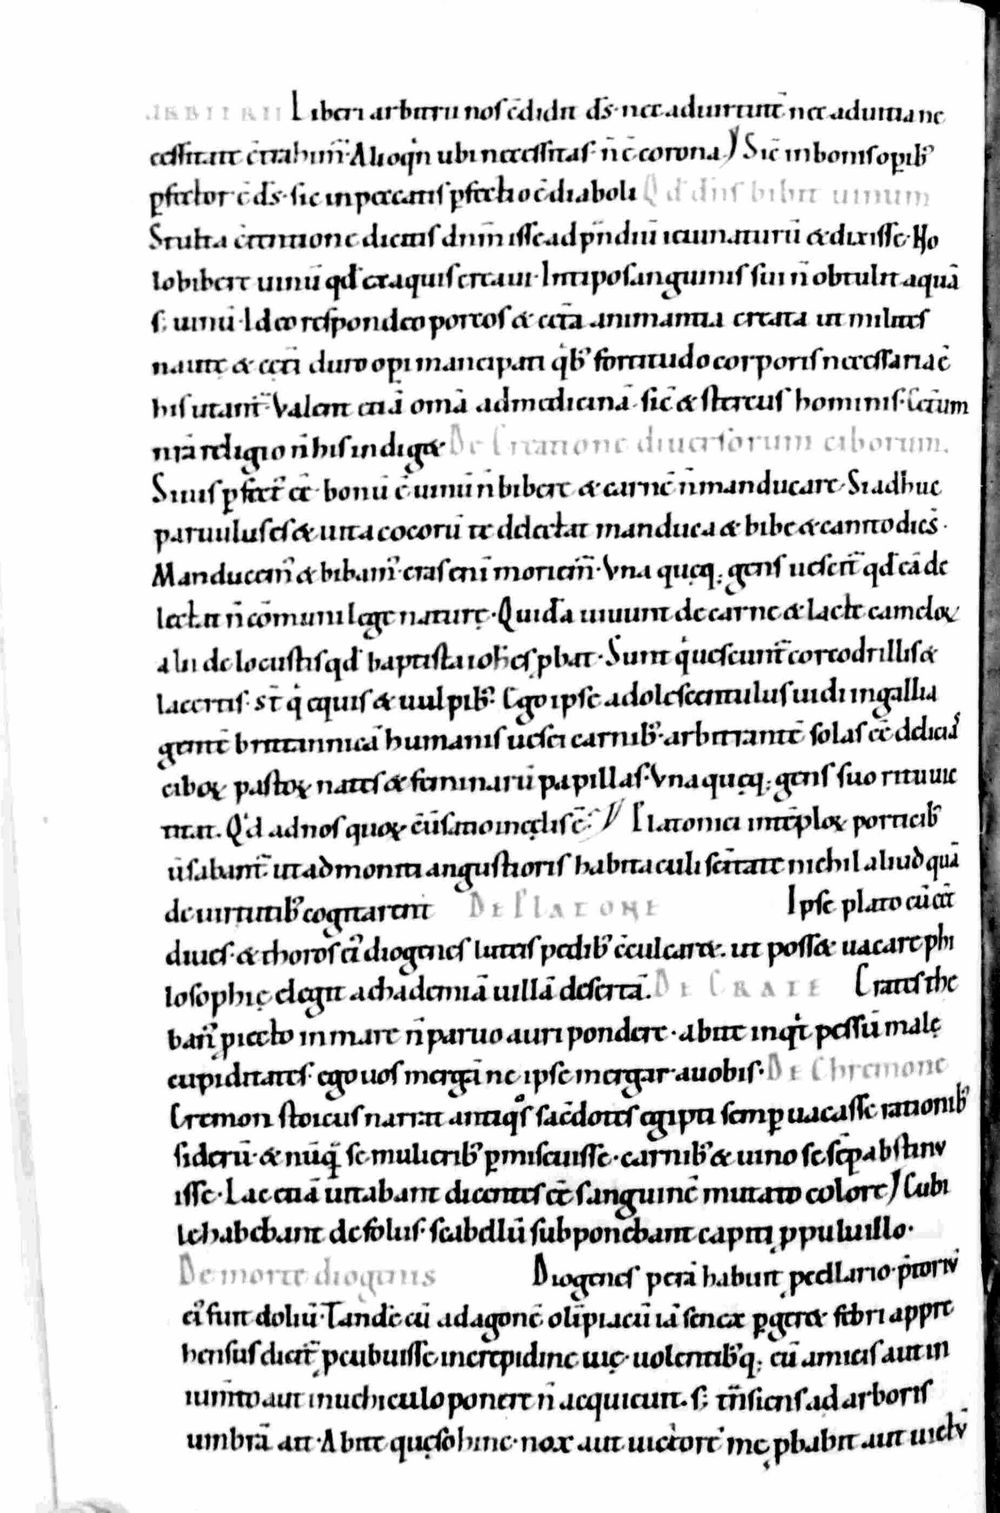 ARBITRII Liberi arbitrii nos c̄didit d̄s· nec ad uirtutē· nec ad uitia ne
cessitate c̄trahim̄· Alioq̄n ubi necessitas· n̄ ē corona. Sic̄ in bonis opib᷒
p̄fector ē d̄s· sic in peccatis p̄fectio ē diaboli Qd̄ dn̄s bibit uinum
Stulta c̄tentione dicitis dn̄m isse ad prandiū ieiunaturū & dixisse· No
lo bibere uinū qd̄ ex aquis creaui· In tipo sanguinis sui n̄ obtulit aquā
s; uinū· Ideo respondeo porcos & cet̄a animantia creata ut milites
naute & cet̄i duro opi mancipati q̄b᷒ fortitudo corporis necessaria ē
his utant̄· Valent etiā om̄a ad medicinā· sic̄ & stercus hominis· Cet̄um
nr̄a religio n̄ his indiget De Creatione diuersorum ciborum.
Si uis p̄fect᷒ eē· bonū ē uinū n̄ bibere & carnē n̄ manducare· Si adhuc
paruulus es & uita cocorū te delectat manduca & bibe & cantico dices̄·
Manducem᷒ & bibam᷒· cras eni moriem̄· Vna queq; gens uescit̄ qd̄ eā de
lectat n̄ cōmuni lege nature· Quidā uiuunt de carne & lacte cameloꝝ
alii de locustis qd̄ baptista ioh̄es pbat· Sunt q̇ uescunt̄ corcodrillis &
lacertis· st̄ q̇ equis & uulpib᷒· Ego ipse adolescentulus uidi in gallia
gentē britannicā humanis uesci carnib᷒· arbitrantē solas eē delicias
ciboꝝ pastoꝝ nates & feminarū papillas· Vna queq; gens suo ritu uic
titat. Qd̄ ad nos quoꝝ c̄uersatio in celis ē· Platonici in tēploꝝ porticib᷒
u̅sabant̄· ut admoniti angustioris habitaculi scītate nichil aliud quā
de uirtutib᷒ cogitarent DE PLATONE Ipse plato cū eēt
diues· & thoros ei᷒ diogenes lutеis pedib᷒ c̄culcaret· ut posset uacare phi
losophie elegit achademiā uillā desertā. DE CRATE Crates the
ban᷒ piecto in mare n̄ paruo auri pondere· abite inq̇t pessū male
cupiditates· ego uos mergā ne ipse mergar a uobis· DE Chremone
Cremon stoicus narrat antiq̊s sac̄dotes egipti semp uacasse rationib᷒
siderū· & nūq̄ se mulierib᷒ p̄miscuisse· carnib᷒ & uino se sēp abstinu
isse· Lac etiā uitabant dicentes eē sanguinē mutato colore Cubi
le habebant de foliis· scabellū subponebant capiti p puluillo·
De morte diogenis Diogenes perā habuit pellario· p̄toriū
ei᷒ fuit doliū· Tandē cū ad agonē olīpiacū iā senex pgeret febri appre
hensus dicit̄ pcubuisse in crepidine uie· uolentib᷒q; eū amicis aut in
iumēto aut in uehiculo ponere n̄ acquieuit. s; tr̄siens ad arboris
umbrā ait· Abite queso hinc· nox aut uictorē me pbabit aut uictū